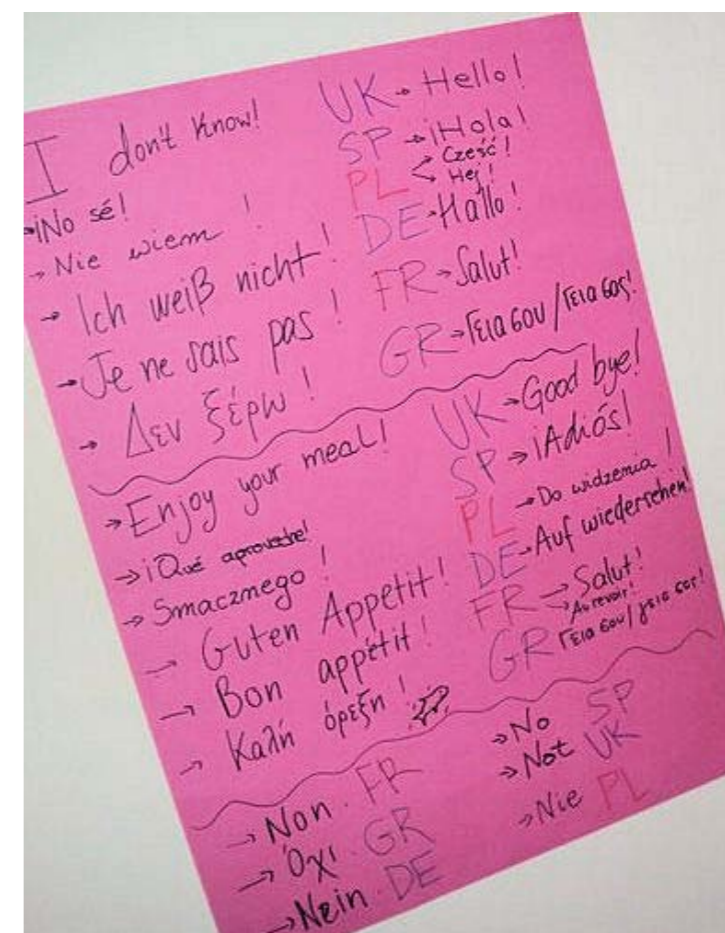 I don't know!
→ ¡No sé!
→ Nie wiem!
→ Ich weiß nicht!
→ Je ne sais pas!
→ Δεν ξέρω!
UK → Hello!
SP → ¡Hola!
PL → Cześć!
→ Hej!
DE → Hallo!
FR → Salut!
GR → Γεια σου / Γεια σας!
→ Enjoy your meal!
→ ¡Qué aproveche!
→ Smacznego!
→ Guten Appetit!
→ Bon appétit!
→ Καλή όρεξη!
UK → Good bye!
SP → ¡Adiós!
PL → Do widzenia!
DE → Auf wiedersehen!
FR → Salut!
→ Au revoir!
GR Γεια σου / γεια σας!
→ Non FR
→ Όχι GR
→ Nein DE
→ No SP
→ Not UK
→ Nie PL